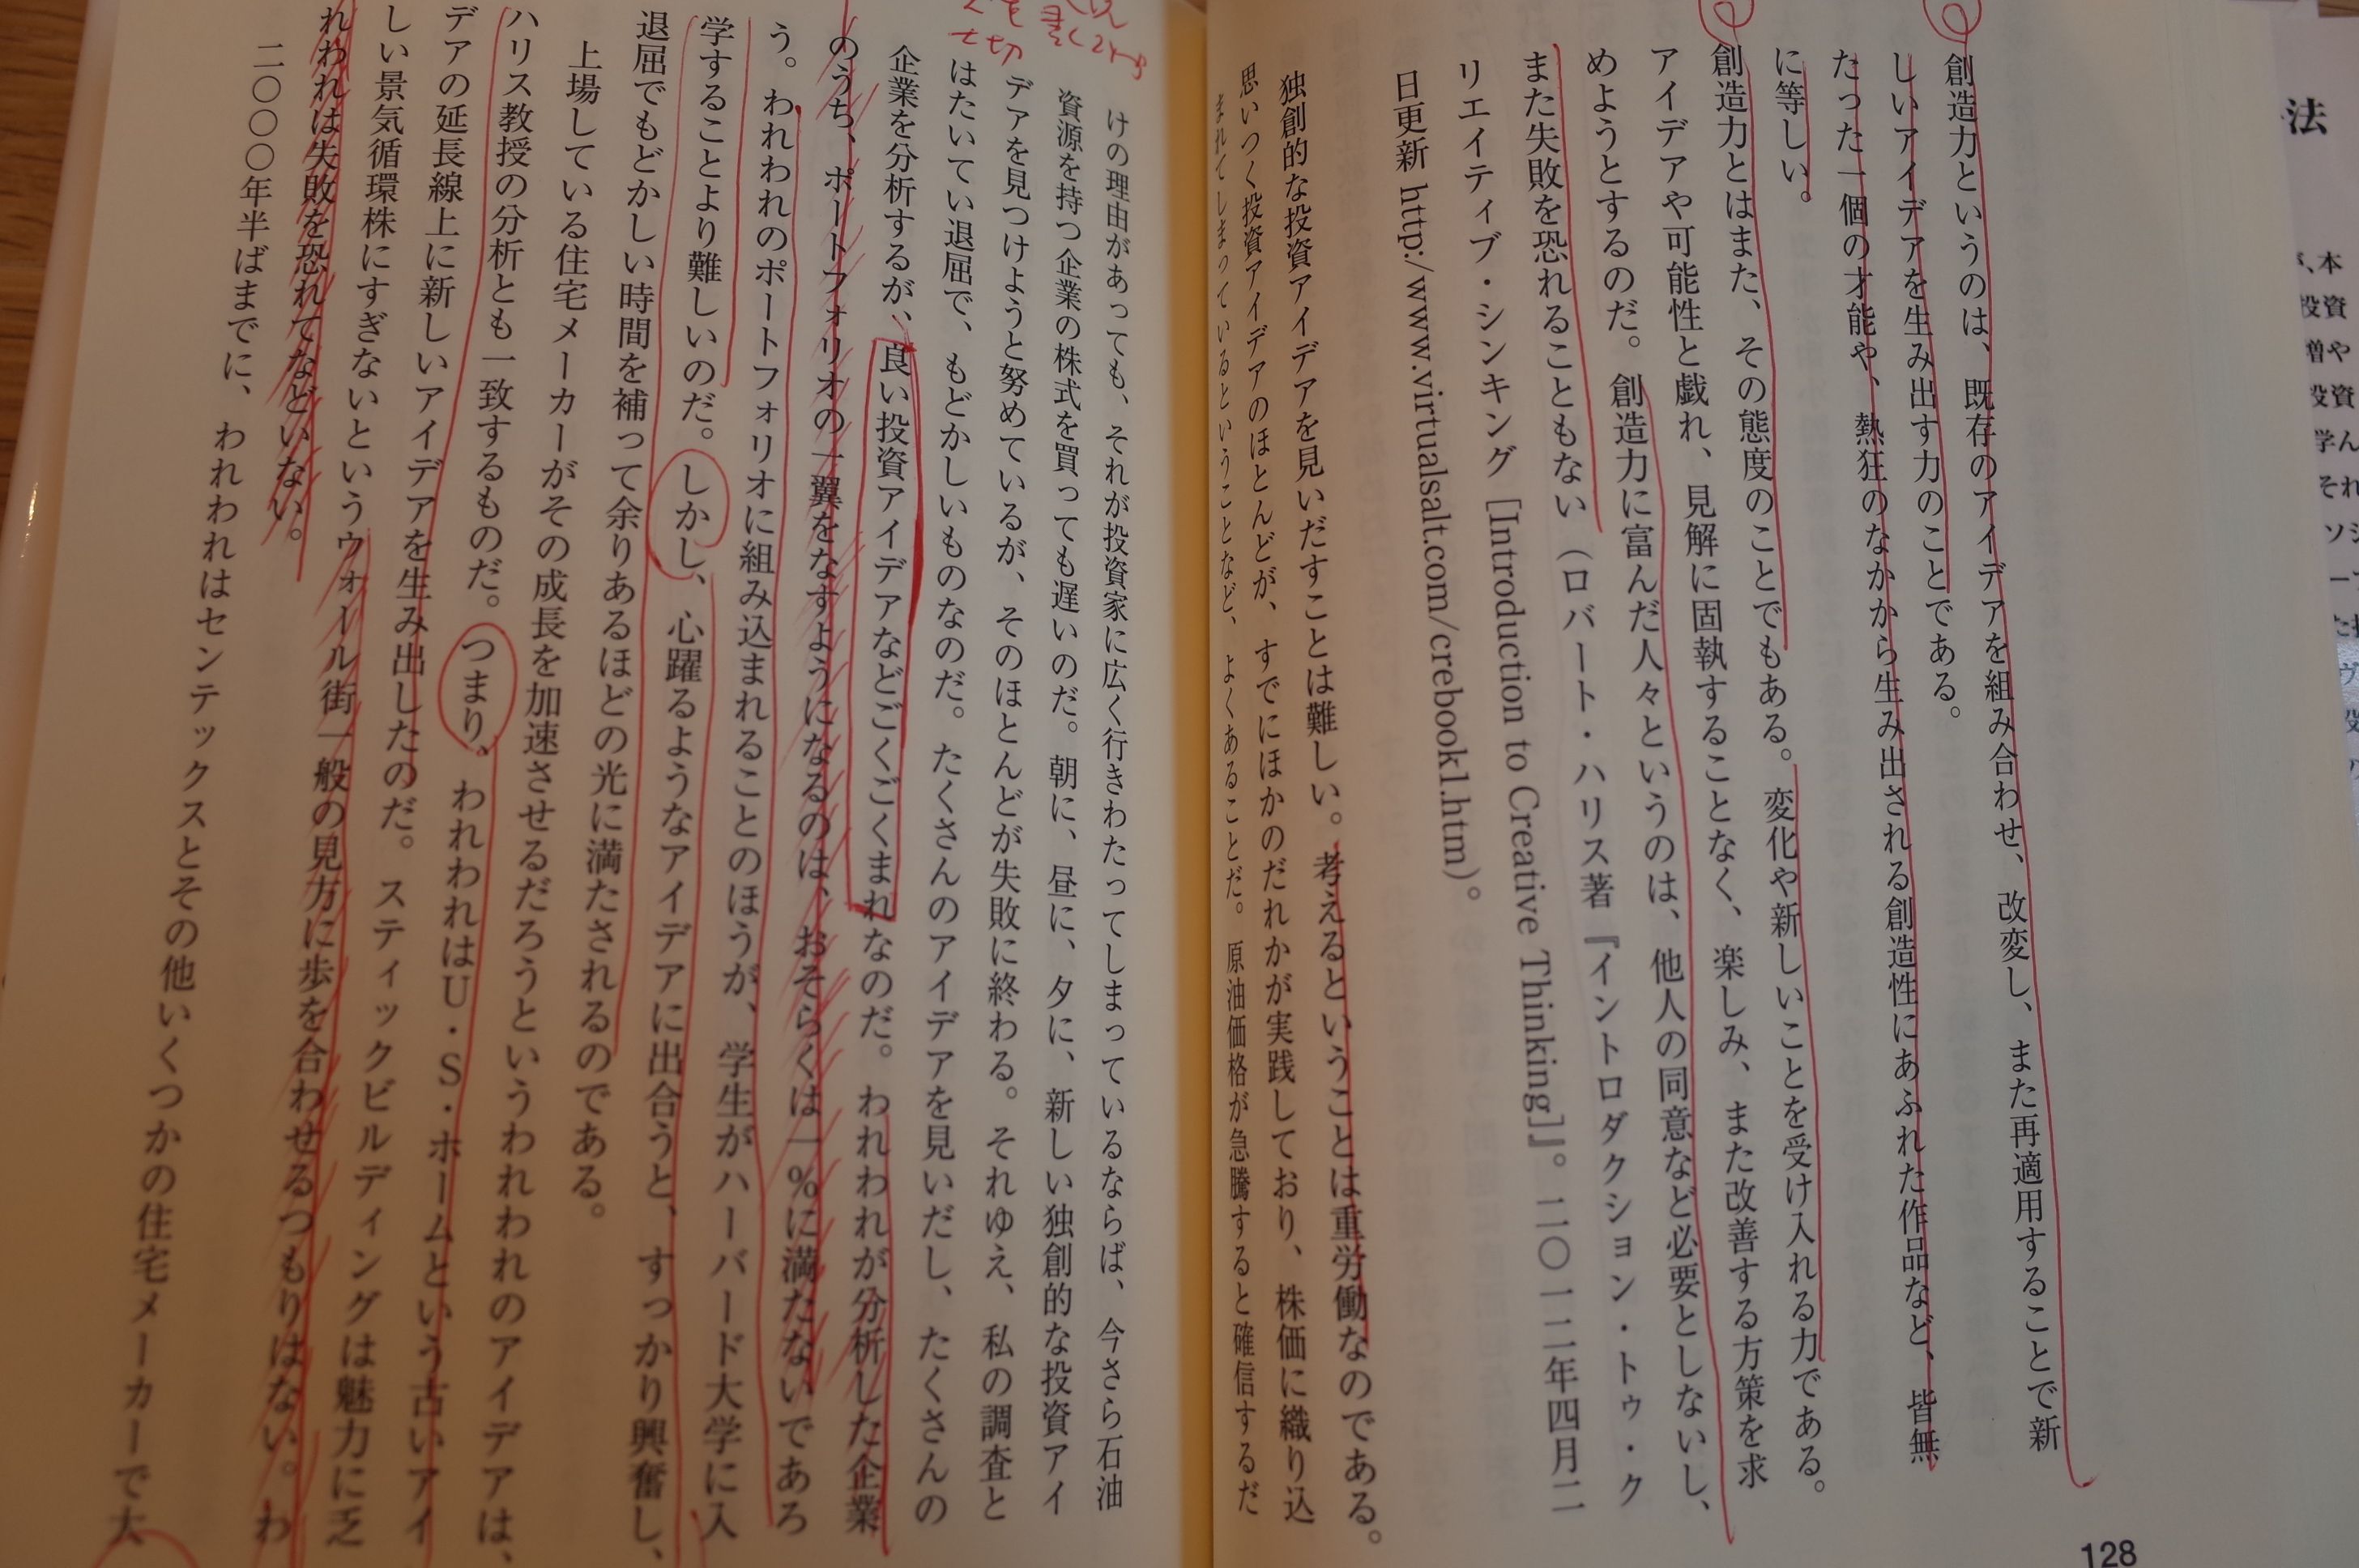 創造力というのは、既存のアイデアを組み合わせ、改変し、また再適用することで新
しいアイデアを生み出す力のことである。
たった一個の才能や、熱狂のなかから生み出される創造性にあふれた作品など、皆無
に等しい。
創造力とはまた、その態度のことでもある。変化や新しいことを受け入れる力である。
アイデアや可能性と戯れ、見解に固執することなく、楽しみ、また改善する方策を求
めようとするのだ。創造力に富んだ人々というのは、他人の同意など必要としないし、
また失敗を恐れることもない（ロバート・ハリス著『イントロダクション・トゥ・ク
リエイティブ・シンキング［Introduction to Creative Thinking］』。二〇一二年四月二
日更新 http:/www.virtualsalt.com/crebook1.htm）。
独創的な投資アイデアを見いだすことは難しい。考えるということは重労働なのである。
思いつく投資アイデアのほとんどが、すでにほかのだれかが実践しており、株価に織り込
まれてしまっているということなど、よくあることだ。原油価格が急騰すると確信するだ
128
けの理由があっても、それが投資家に広く行きわたってしまっているならば、今さら石油
資源を持つ企業の株式を買っても遅いのだ。朝に、昼に、夕に、新しい独創的な投資アイ
デアを見つけようと努めているが、そのほとんどが失敗に終わる。それゆえ、私の調査と
はたいてい退屈で、もどかしいものなのだ。たくさんのアイデアを見いだし、たくさんの
企業を分析するが、良い投資アイデアなどごくごくまれなのだ。われわれが分析した企業
のうち、ポートフォリオの一翼をなすようになるのは、おそらくは一％に満たないであろ
う。われわれのポートフォリオに組み込まれることのほうが、学生がハーバード大学に入
学することより難しいのだ。しかし、心躍るようなアイデアに出合うと、すっかり興奮し、
退屈でもどかしい時間を補って余りあるほどの光に満たされるのである。
上場している住宅メーカーがその成長を加速させるだろうというわれわれのアイデアは、
ハリス教授の分析とも一致するものだ。つまり、われわれはU・S・ホームという古いアイ
デアの延長線上に新しいアイデアを生み出したのだ。スティックビルディングは魅力に乏
しい景気循環株にすぎないというウォール街一般の見方に歩を合わせるつもりはない。わ
れわれは失敗を恐れてなどいない。
二〇〇〇年半ばまでに、われわれはセンテックスとその他いくつかの住宅メーカーで大
法